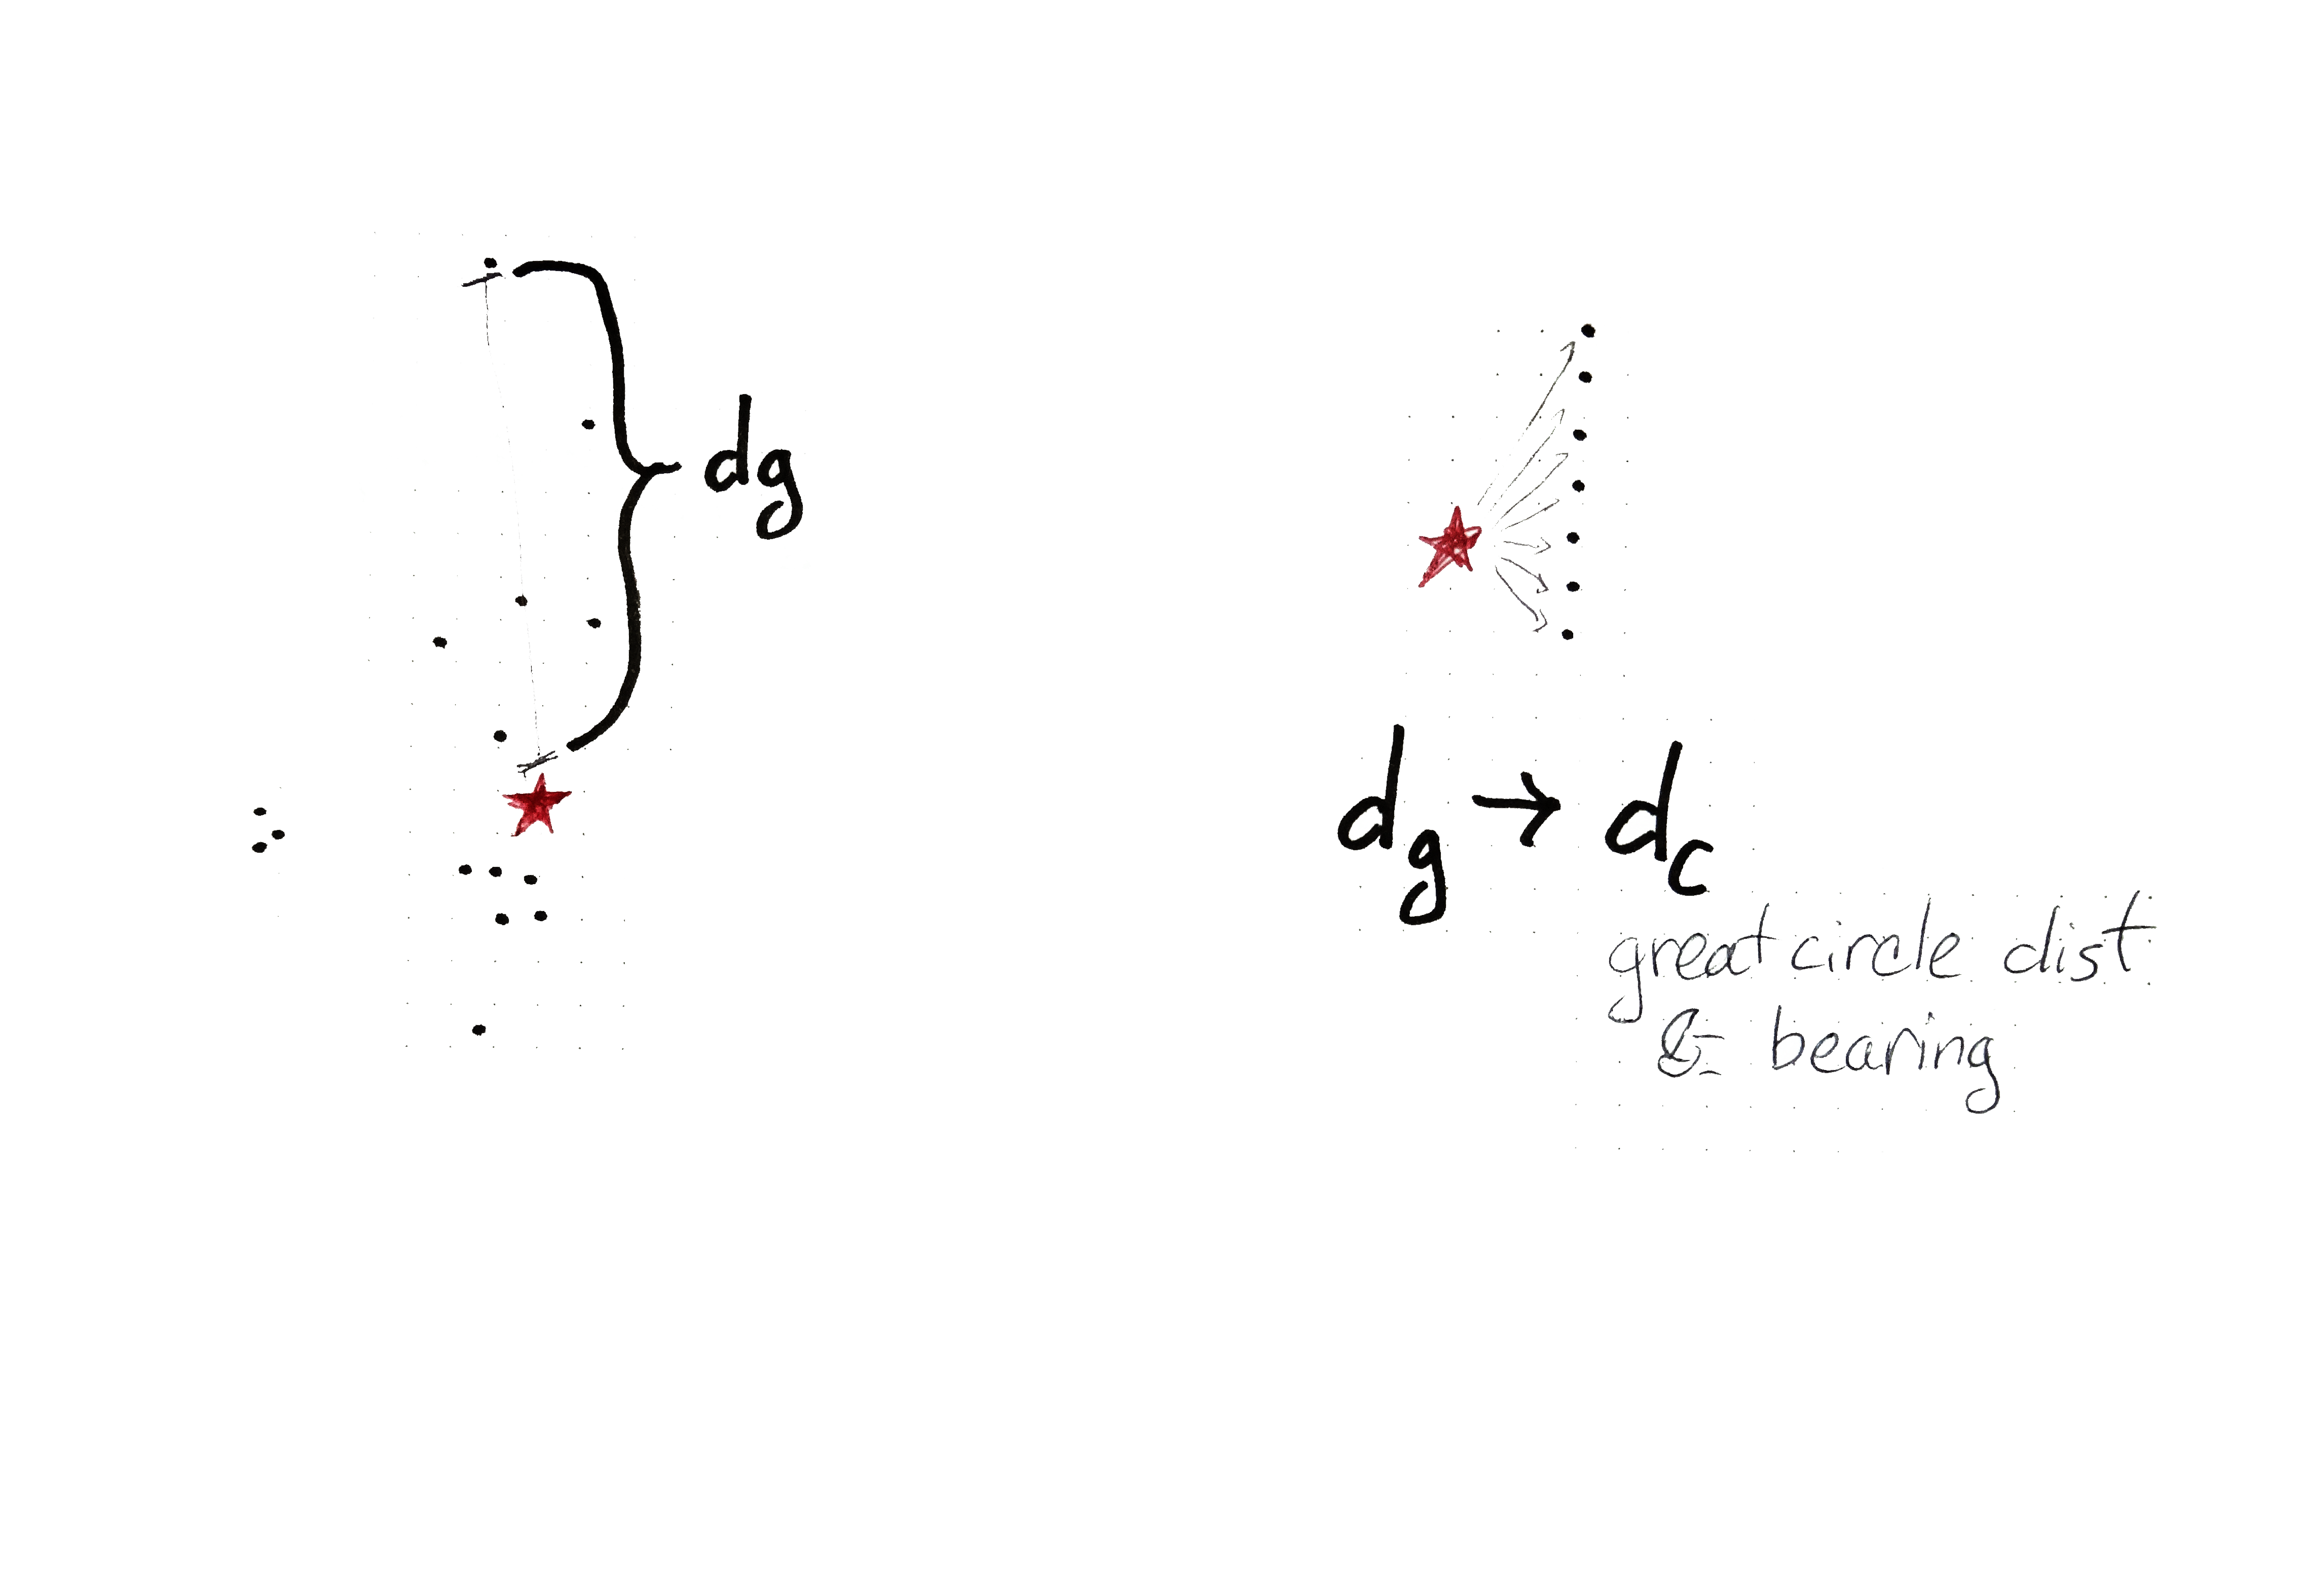 dg
dg → dc
great circle dist
& bearing